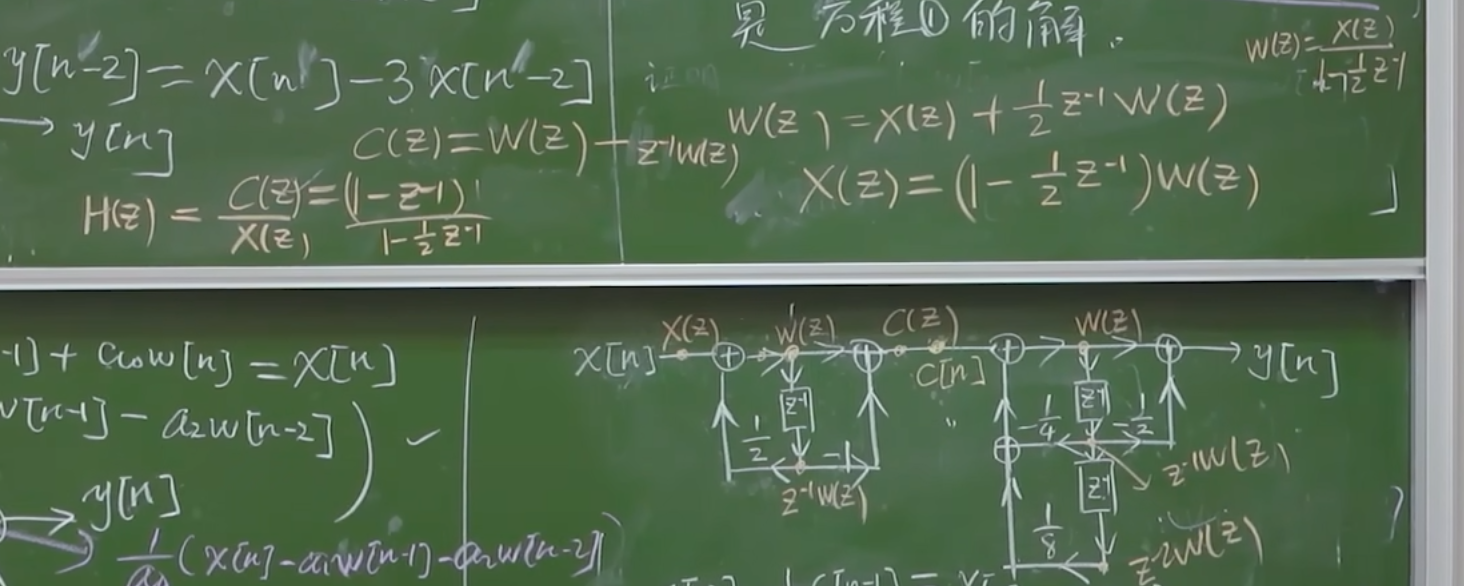 y[n-2] = x[n] - 3x[n-2]
→ y[n]
C(z) = W(z) - z⁻¹W(z)
H(z) = C(z)/X(z) = (1 - z⁻¹)/(1 - ½z⁻¹)
是方程①的解.
W(z) = X(z)/(1 - ½z⁻¹)
证明
W(z) = X(z) + ½z⁻¹W(z)
X(z) = (1 - ½z⁻¹)W(z)
-1] + a₀w[n] = x[n]
w[n-1] - a₂w[n-2]] ) ✓
→ y[n]
1/a₀ (x[n] - a₁w[n-1] - a₂w[n-2])
X(z) W(z) C(z) W(z)
x[n] + + C[n] + + y[n]
z⁻¹ z⁻¹
½ -1 -¼ -½
z⁻¹W(z) z⁻¹W(z)
z⁻¹
⅛ z⁻²W(z)